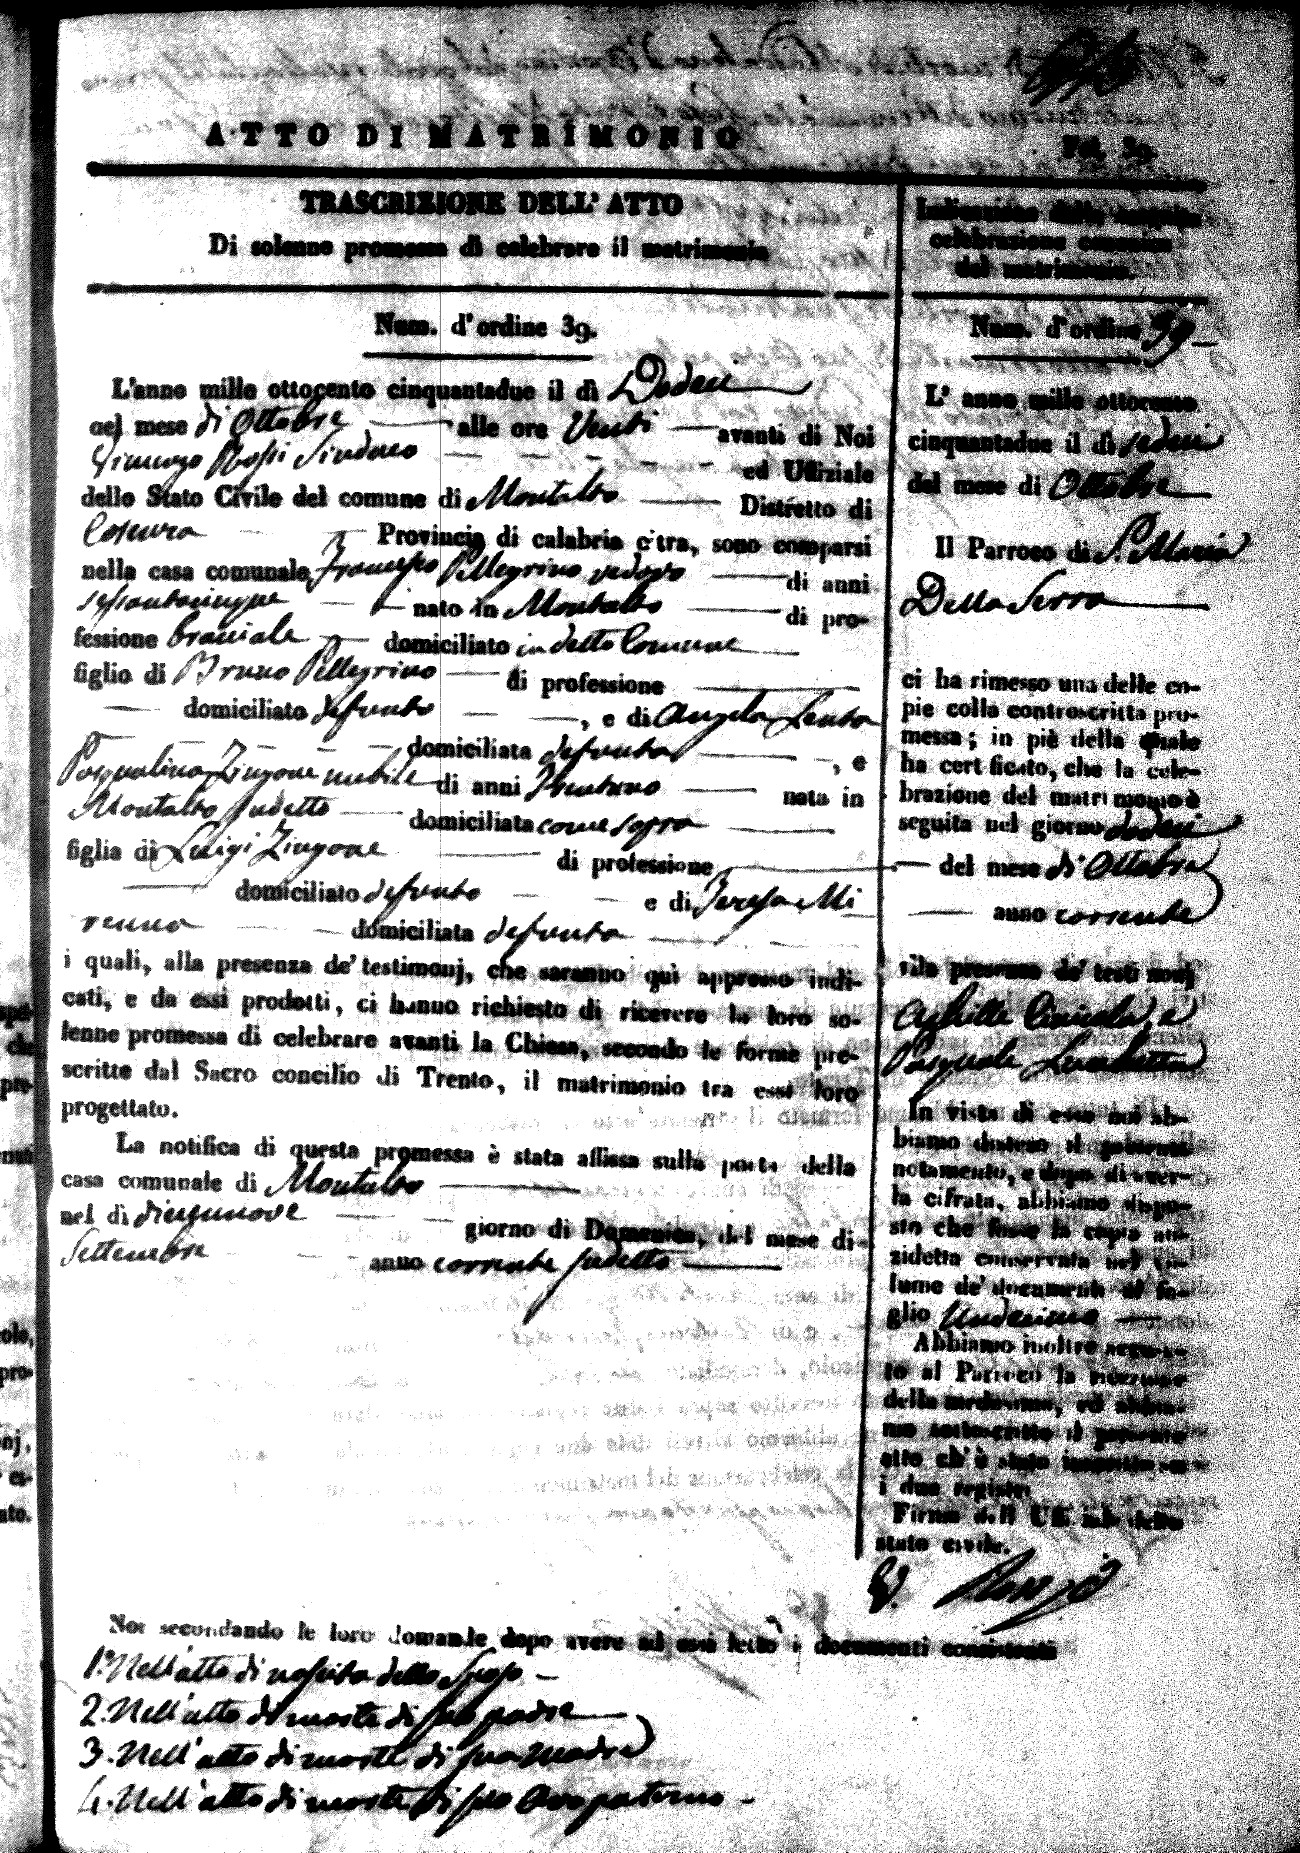 ATTO DI MATRIMONIO
Fol. 39.
TRASCRIZIONE DELL' ATTO
Di solenne promessa di celebrare il matrimonio
Num. d'ordine 39.
L'anno mille ottocento cinquantadue il dì Dodeci
nel mese di Ottobre alle ore Venti avanti di Noi
Rossi Sindaco ed Uffiziale
dello Stato Civile del comune di Montalto Distretto di
Cosenza Provincia di calabria citra, sono comparsi
nella casa comunale Francesco Pellegrino vedovo di anni
sessantacinque nato in Montalto di pro-
fessione bracciale domiciliato in detto Comune
figlio di Bruno Pellegrino di professione
domiciliato defunto , e di Angela Lento
domiciliata defunta , e
Pasqualina Zingone nubile di anni Trentuno nata in
Montalto sudetto domiciliata come sopra
figlia di Luigi Zingone di professione
domiciliato defunto e di Teresa Mi
renna domiciliata defunta
i quali, alla presenza de' testimonj, che saranno quì appresso indi-
cati, e da essi prodotti, ci hanno richiesto di ricevere la loro so-
lenne promessa di celebrare avanti la Chiesa, secondo le forme pre-
scritte dal Sacro concilio di Trento, il matrimonio tra essi loro
progettato.
La notifica di questa promessa è stata affissa sulla porta della
casa comunale di Montalto
nel dì diecinnove giorno di Domenica, del mese di
Settembre anno corrente sudetto
Indicazione della seguita
celebrazione canonica
del matrimonio.
Num. d'ordine 39
L' anno mille ottocento
cinquantadue il dì sedeci
del mese di Ottobre
Il Parroco di S. Maria
Della Serra
ci ha rimesso una delle co-
pie colla controscritta pro-
messa; in piè della quale
ha certificato, che la cele-
brazione del matrimonio è
seguita nel giorno dodeci
del mese di Ottobre
anno corrente
alla presenza de' testimonj
Achille e
Pasquale
In vista di essa noi ab-
biamo disteso il presente
notamento, e dopo di aver-
la cifrata, abbiamo dispo-
sto che fosse la copia an-
zidetta conservata nel vo-
lume de' documenti al fo-
glio Undecimo
Abbiamo inoltre accusa-
to al Parroco la ricezione
della medesima, ed abbia-
mo sottoscritto il presente
atto ch' è stato inscritto su
i due registri
Firma dell' Uffiziale dello
stato civile.
Noi secondando le loro domande dopo avere ad essi letto i documenti consistenti
1.° Nell'atto di nascita dello Sposo
2. Nell'atto di morte di suo padre
3. Nell'atto di morte di sua Madre
4. Nell'atto di morte di suo Avo paterno